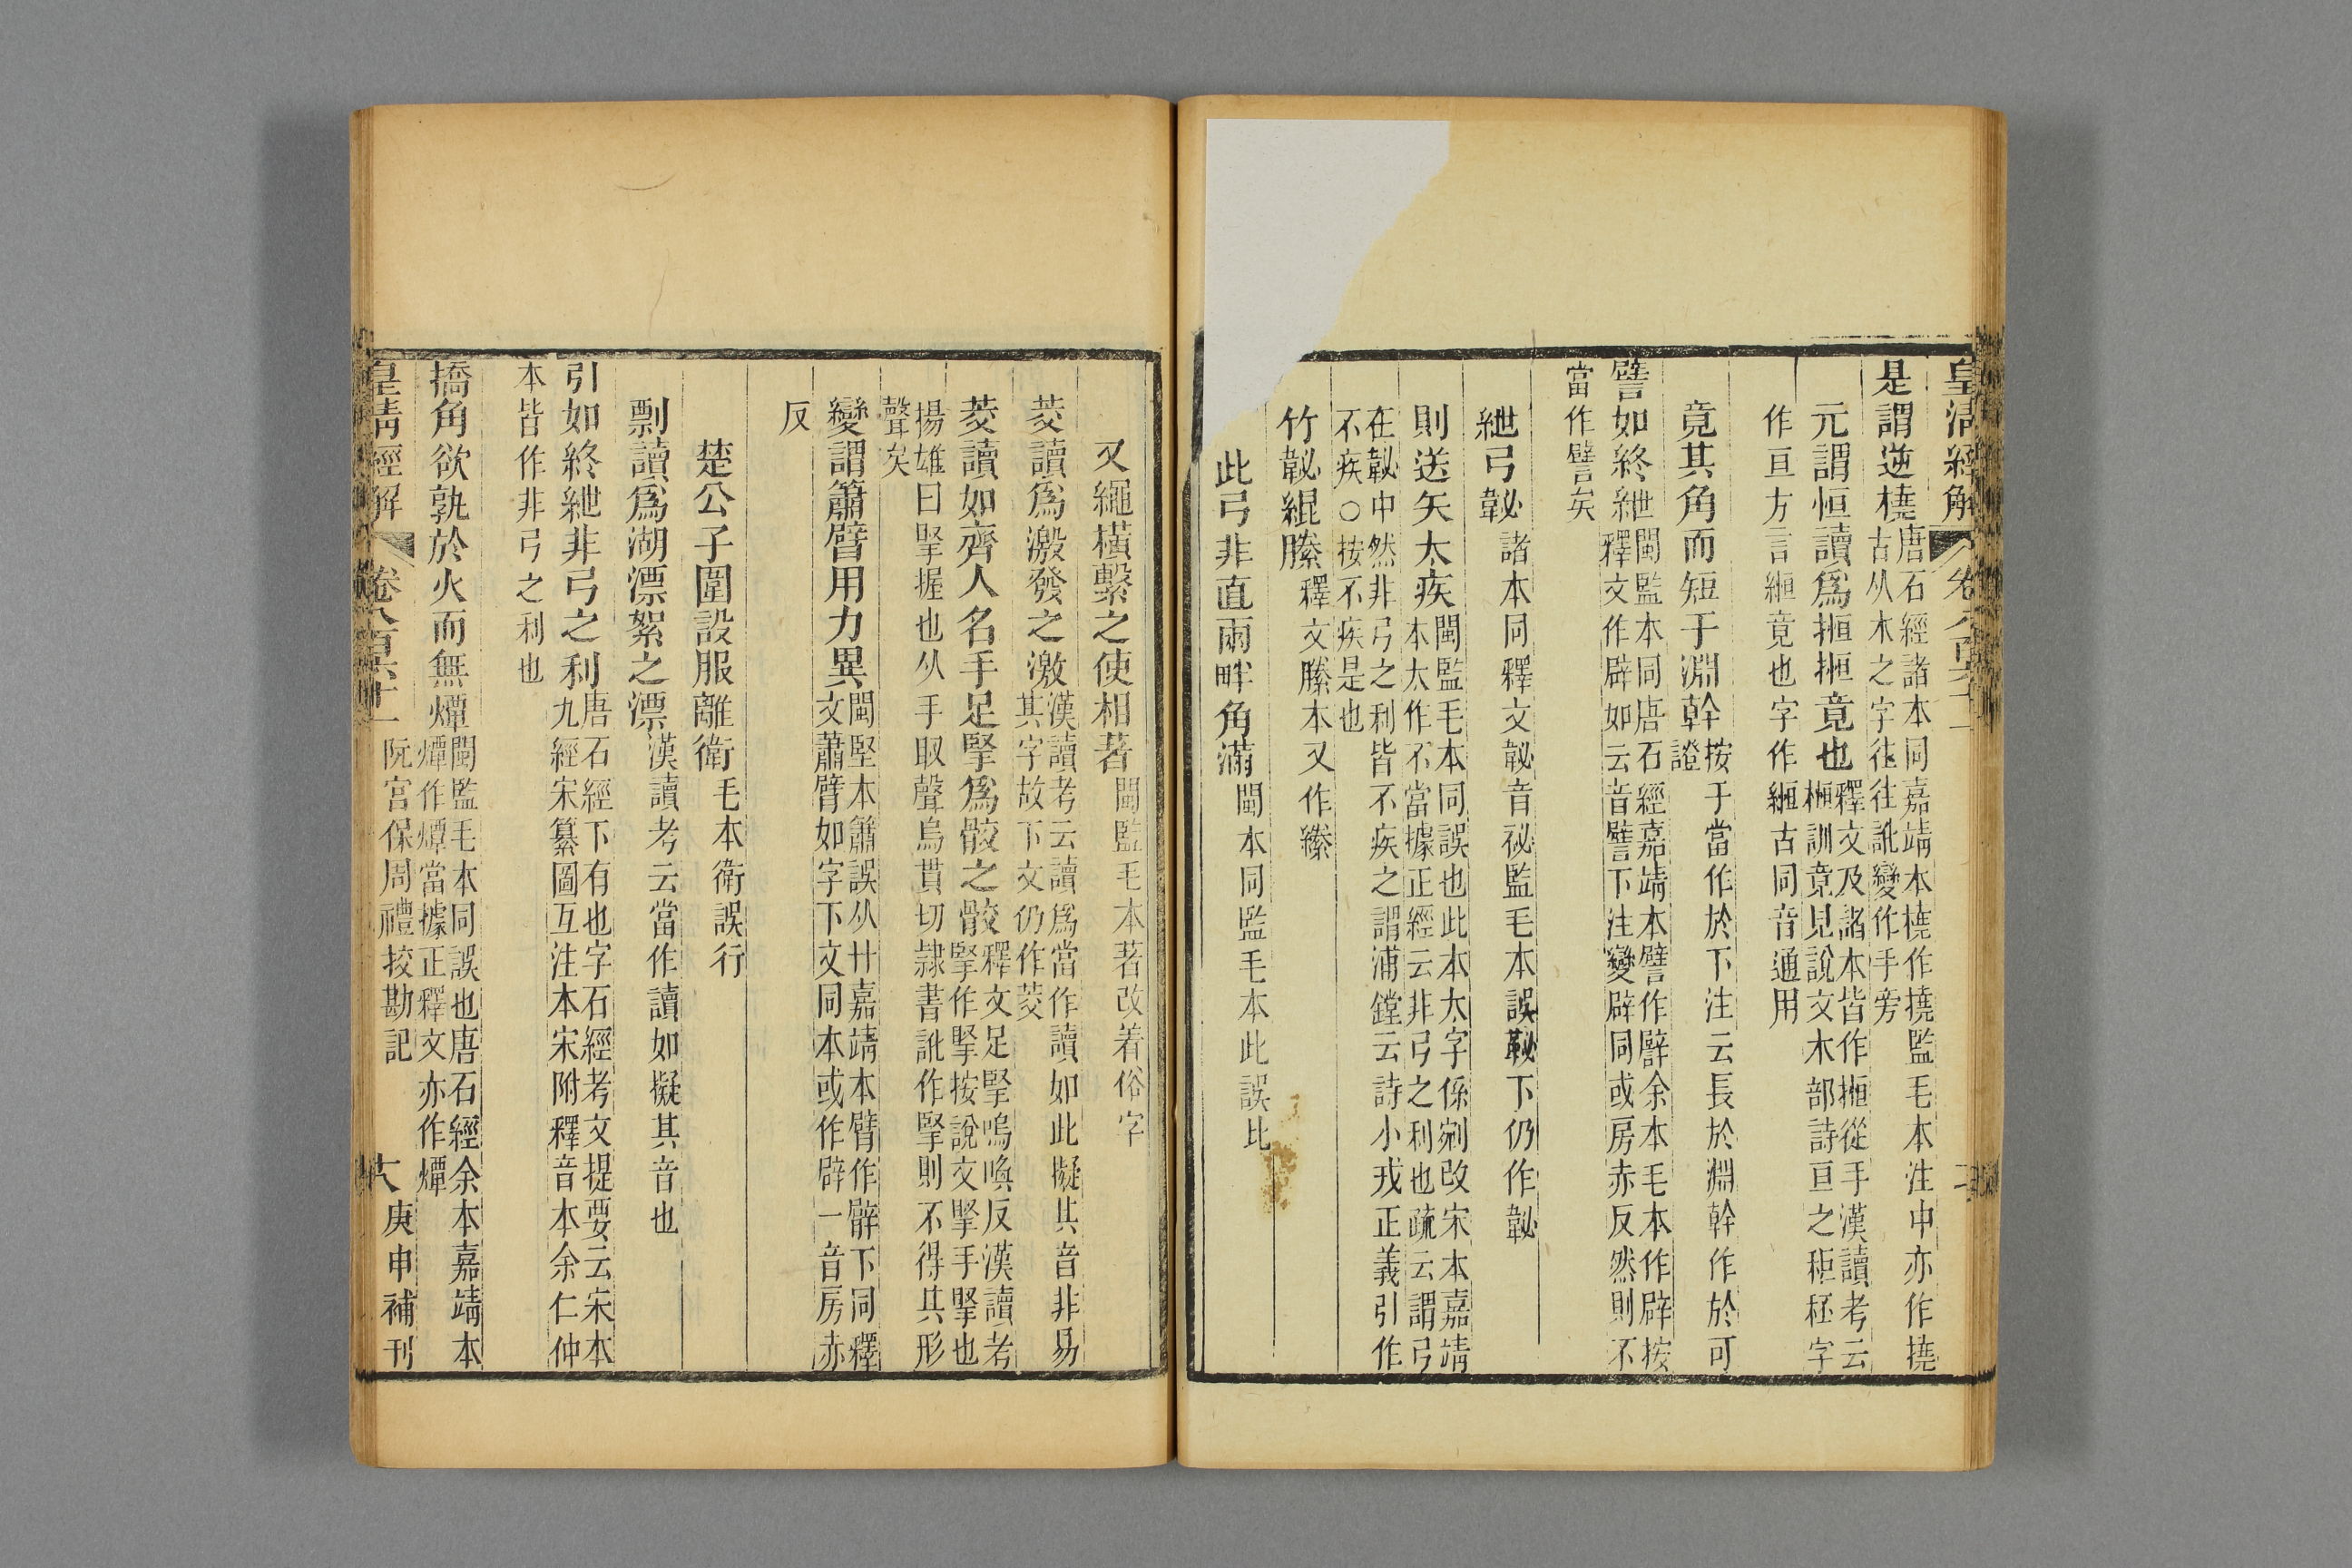 皇清經解 卷八百六十二
是謂逆橈唐石經諸本同嘉靖本橈作撓監毛本注中亦作撓古从木之字往往訛變作手旁
元謂恒讀爲㮓㮓竟也釋文及諸本皆作㮓從手漢讀考云㮓訓竟見說文木部詩亘之秬秠字
作亘方言緪竟也字作緪古同音通用
竟其角而短于淵幹按于當作於下注云長於淵幹作於可證
譬如終紲閩監本同唐石經嘉靖本譬作辟余本毛本作辟按釋文作辟如云音譬下注變辟同或房赤反然則不
當作譬矣
紲弓䪐諸本同釋文䪐音祕監毛本誤鞑下仍作䪐
則送矢太疾閩監毛本同誤也此本太字係剜改宋本嘉靖本太作不當據正經云非弓之利也疏云謂弓
在䪐中然非弓之利皆不疾之謂浦鏜云詩小戎正義引作不疾○按不疾是也
竹䪐緄縢釋文縢本又作縧
此弓非直兩畔角滿閩本同監毛本此誤比
又繩橫繫之使相著閩監毛本著改着俗字
茭讀爲激發之激漢讀考云讀爲當作讀如此擬其音非易其字故下文仍作茭
茭讀如齊人名手足掔爲骹之骹釋文足掔嗚喚反漢讀考掔作掔按說文掔手掔也
揚雄曰掔握也从手取聲烏貫切隷書訛作掔則不得其形聲矣
變謂簫臂用力異閩監本簫誤从廾嘉靖本臂作辟下同釋文蕭臂如字下文同本或作辟一音房赤
反
楚公子圍設服離衛毛本衛誤行
剽讀爲湖漂絮之漂漢讀考云當作讀如擬其音也
引如終紲非弓之利唐石經下有也字石經考文提要云宋本九經宋纂圖互注本宋附釋音本余仁仲
本皆作非弓之利也
撟角欲孰於火而無燂閩監毛本同誤也唐石經余本嘉靖本燂作燂當據正釋文亦作燂
皇清經解 卷八百六十二 阮宮保周禮挍勘記 大 庚申補刊